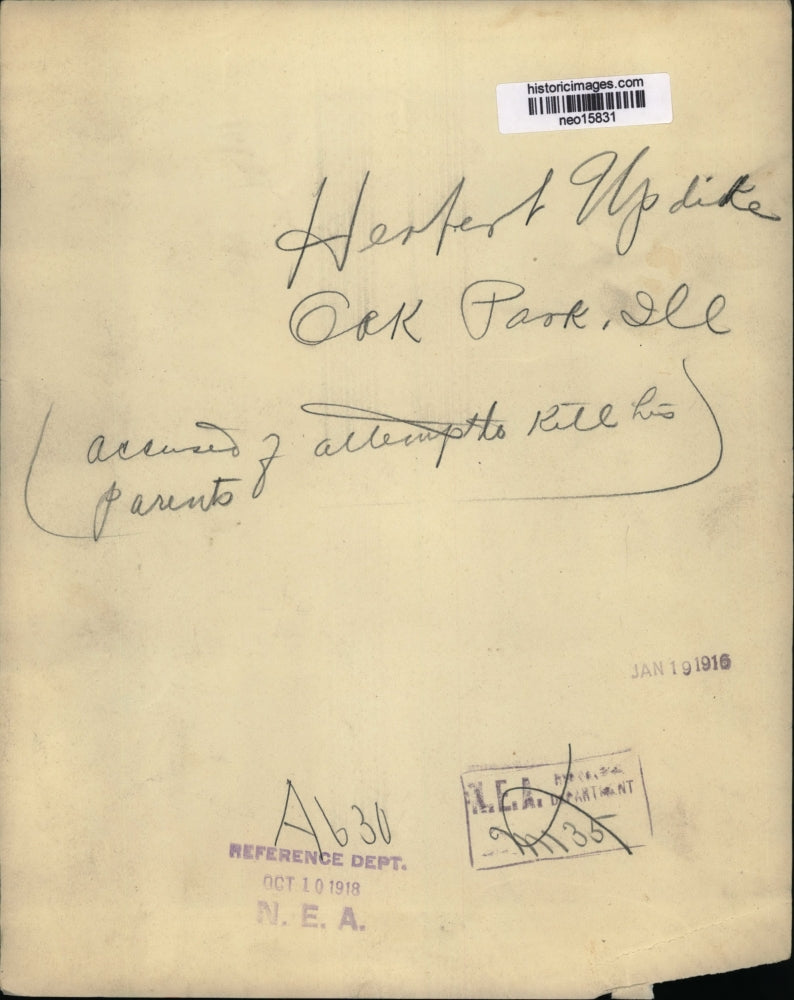 historicimages.com
neo15831
Herbert Updike
Oak Park, Ill
(accused of attempt to kill his
parents)
JAN 19 1916
N.E.A. DEPARTMENT
35
Ab30
REFERENCE DEPT.
OCT 10 1918
N. E. A.